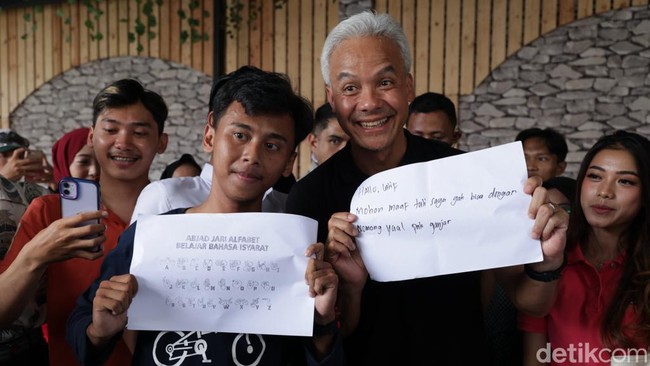 ABJAD JARI ALFABET
BELAJAR BAHASA ISYARAT
A B C D E F G H I
J K L M N O P Q
R S T U V W X Y Z
Hallo, Afif
Mohon maaf tadi saya gak bisa dengar
Pak ganjar
detikcom